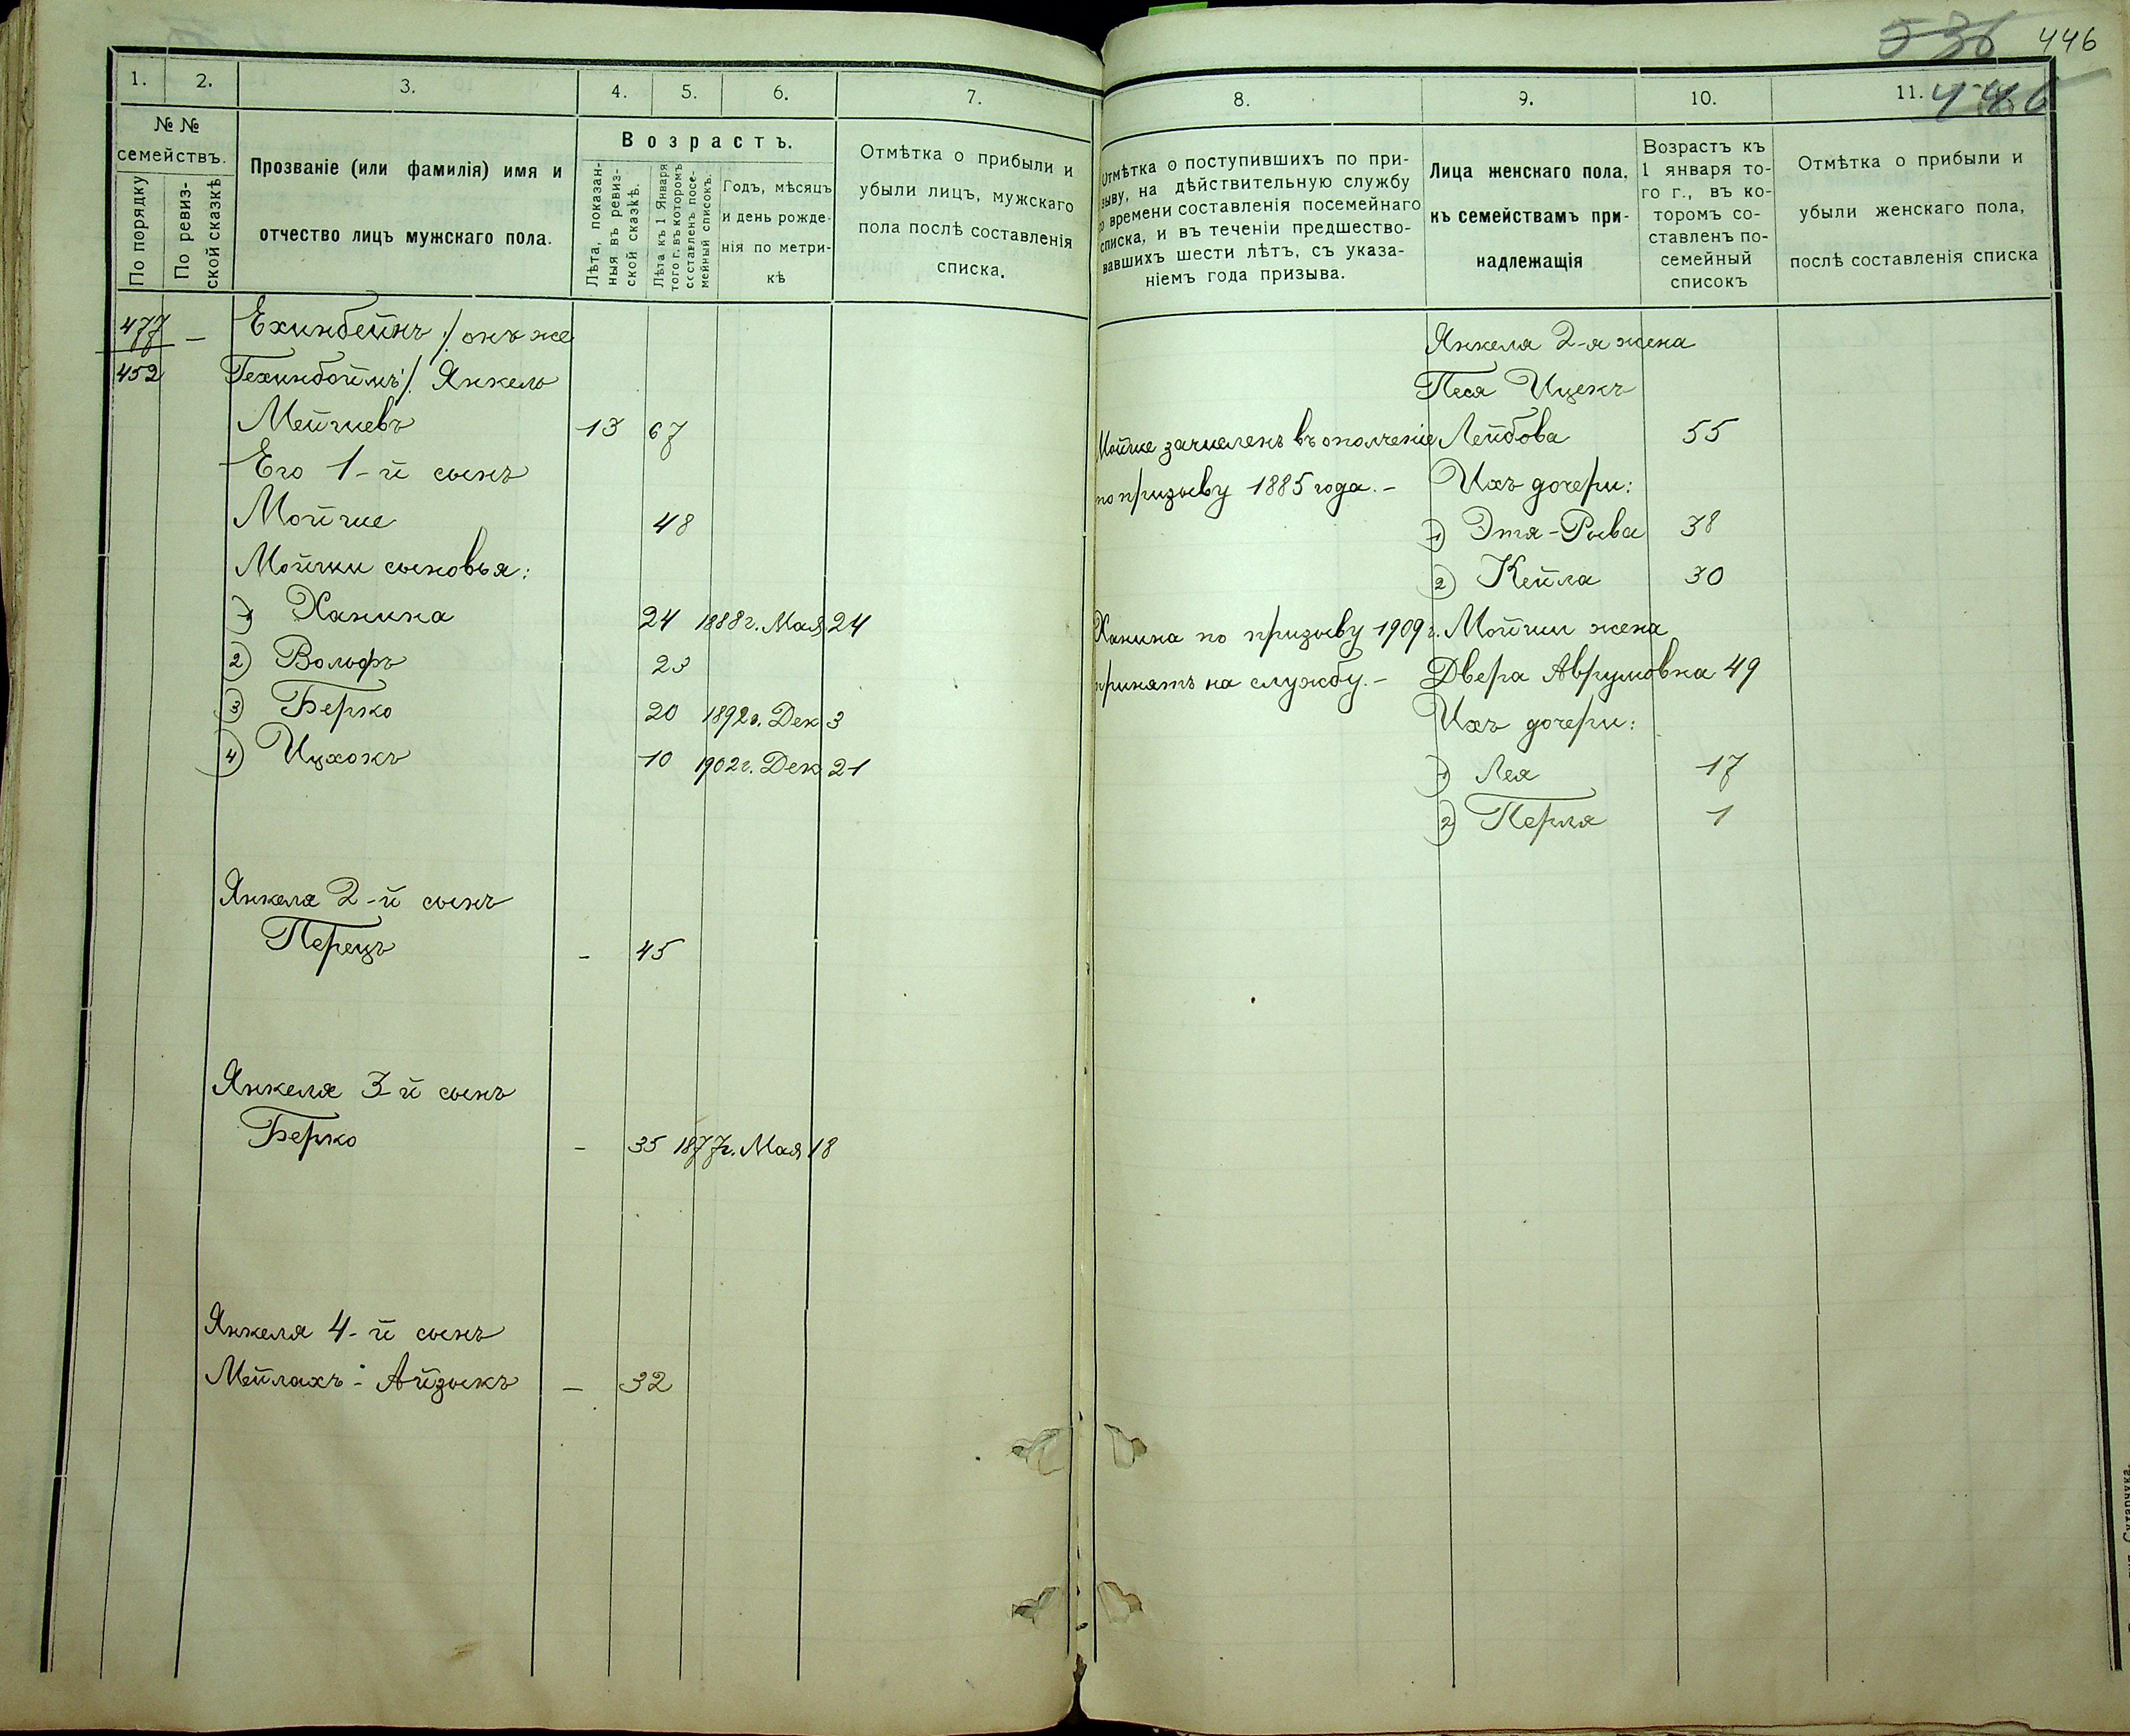 536 446
446
1. 2. 3. 4. 5. 6. 7.
№ № семействъ.
По порядку
По ревиз-
ской сказкѣ
Прозваніе (или фамилія) имя и
отчество лицъ мужскаго пола.
Возрастъ.
Лѣта, показан-
ныя въ ревиз-
ской сказкѣ.
Лѣта къ 1 Января
того г. въ которомъ
составленъ посе-
мейный списокъ.
Годъ, мѣсяцъ
и день рожде-
нія по метри-
кѣ
Отмѣтка о прибыли и
убыли лицъ, мужскаго
пола послѣ составленія
списка.
477 — Ехинбейнъ /: онъ же
452 Гехинбоймъ :/ Янкель
Мейшевъ 13 67
Его 1-й сынъ
Мойше 48
Мойши сыновья:
1) Ханина 24 1888г. Мая 24
2) Вольфъ 23
3) Берко 20 1892г. Дек 3
4) Ицхокъ 10 1902г. Дек 21
Янкеля 2-й сынъ
Перецъ - 45
Янкеля 3-й сынъ
Берко - 35 1877г. Мая 18
Янкеля 4-й сынъ
Мейлахъ-Айзыкъ — 32
8. 9. 10. 11.
Отмѣтка о поступившихъ по при-
зыву, на дѣйствительную службу
о времени составленія посемейнаго
списка, и въ теченіи предшество-
вавшихъ шести лѣтъ, съ указа-
ніемъ года призыва.
Лица женскаго пола,
къ семействамъ при-
надлежащія
Возрастъ къ
1 января то-
го г., въ ко-
торомъ со-
ставленъ по-
семейный
списокъ
Отмѣтка о прибыли и
убыли женскаго пола,
послѣ составленія списка
Янкеля 2-я жена
Песя Ицекъ
Мойше зачисленъ въ ополченіе Лейбова 55
по призыву 1885 года.- Ихъ дочери:
1) Этя-Рыва 38
2) Кейла 30
Ханина по призыву 1909 г. Мойши жена
принятъ на службу.- Двера Аврумовна 49
Ихъ дочери:
1) Лея 17
2) Перля 1